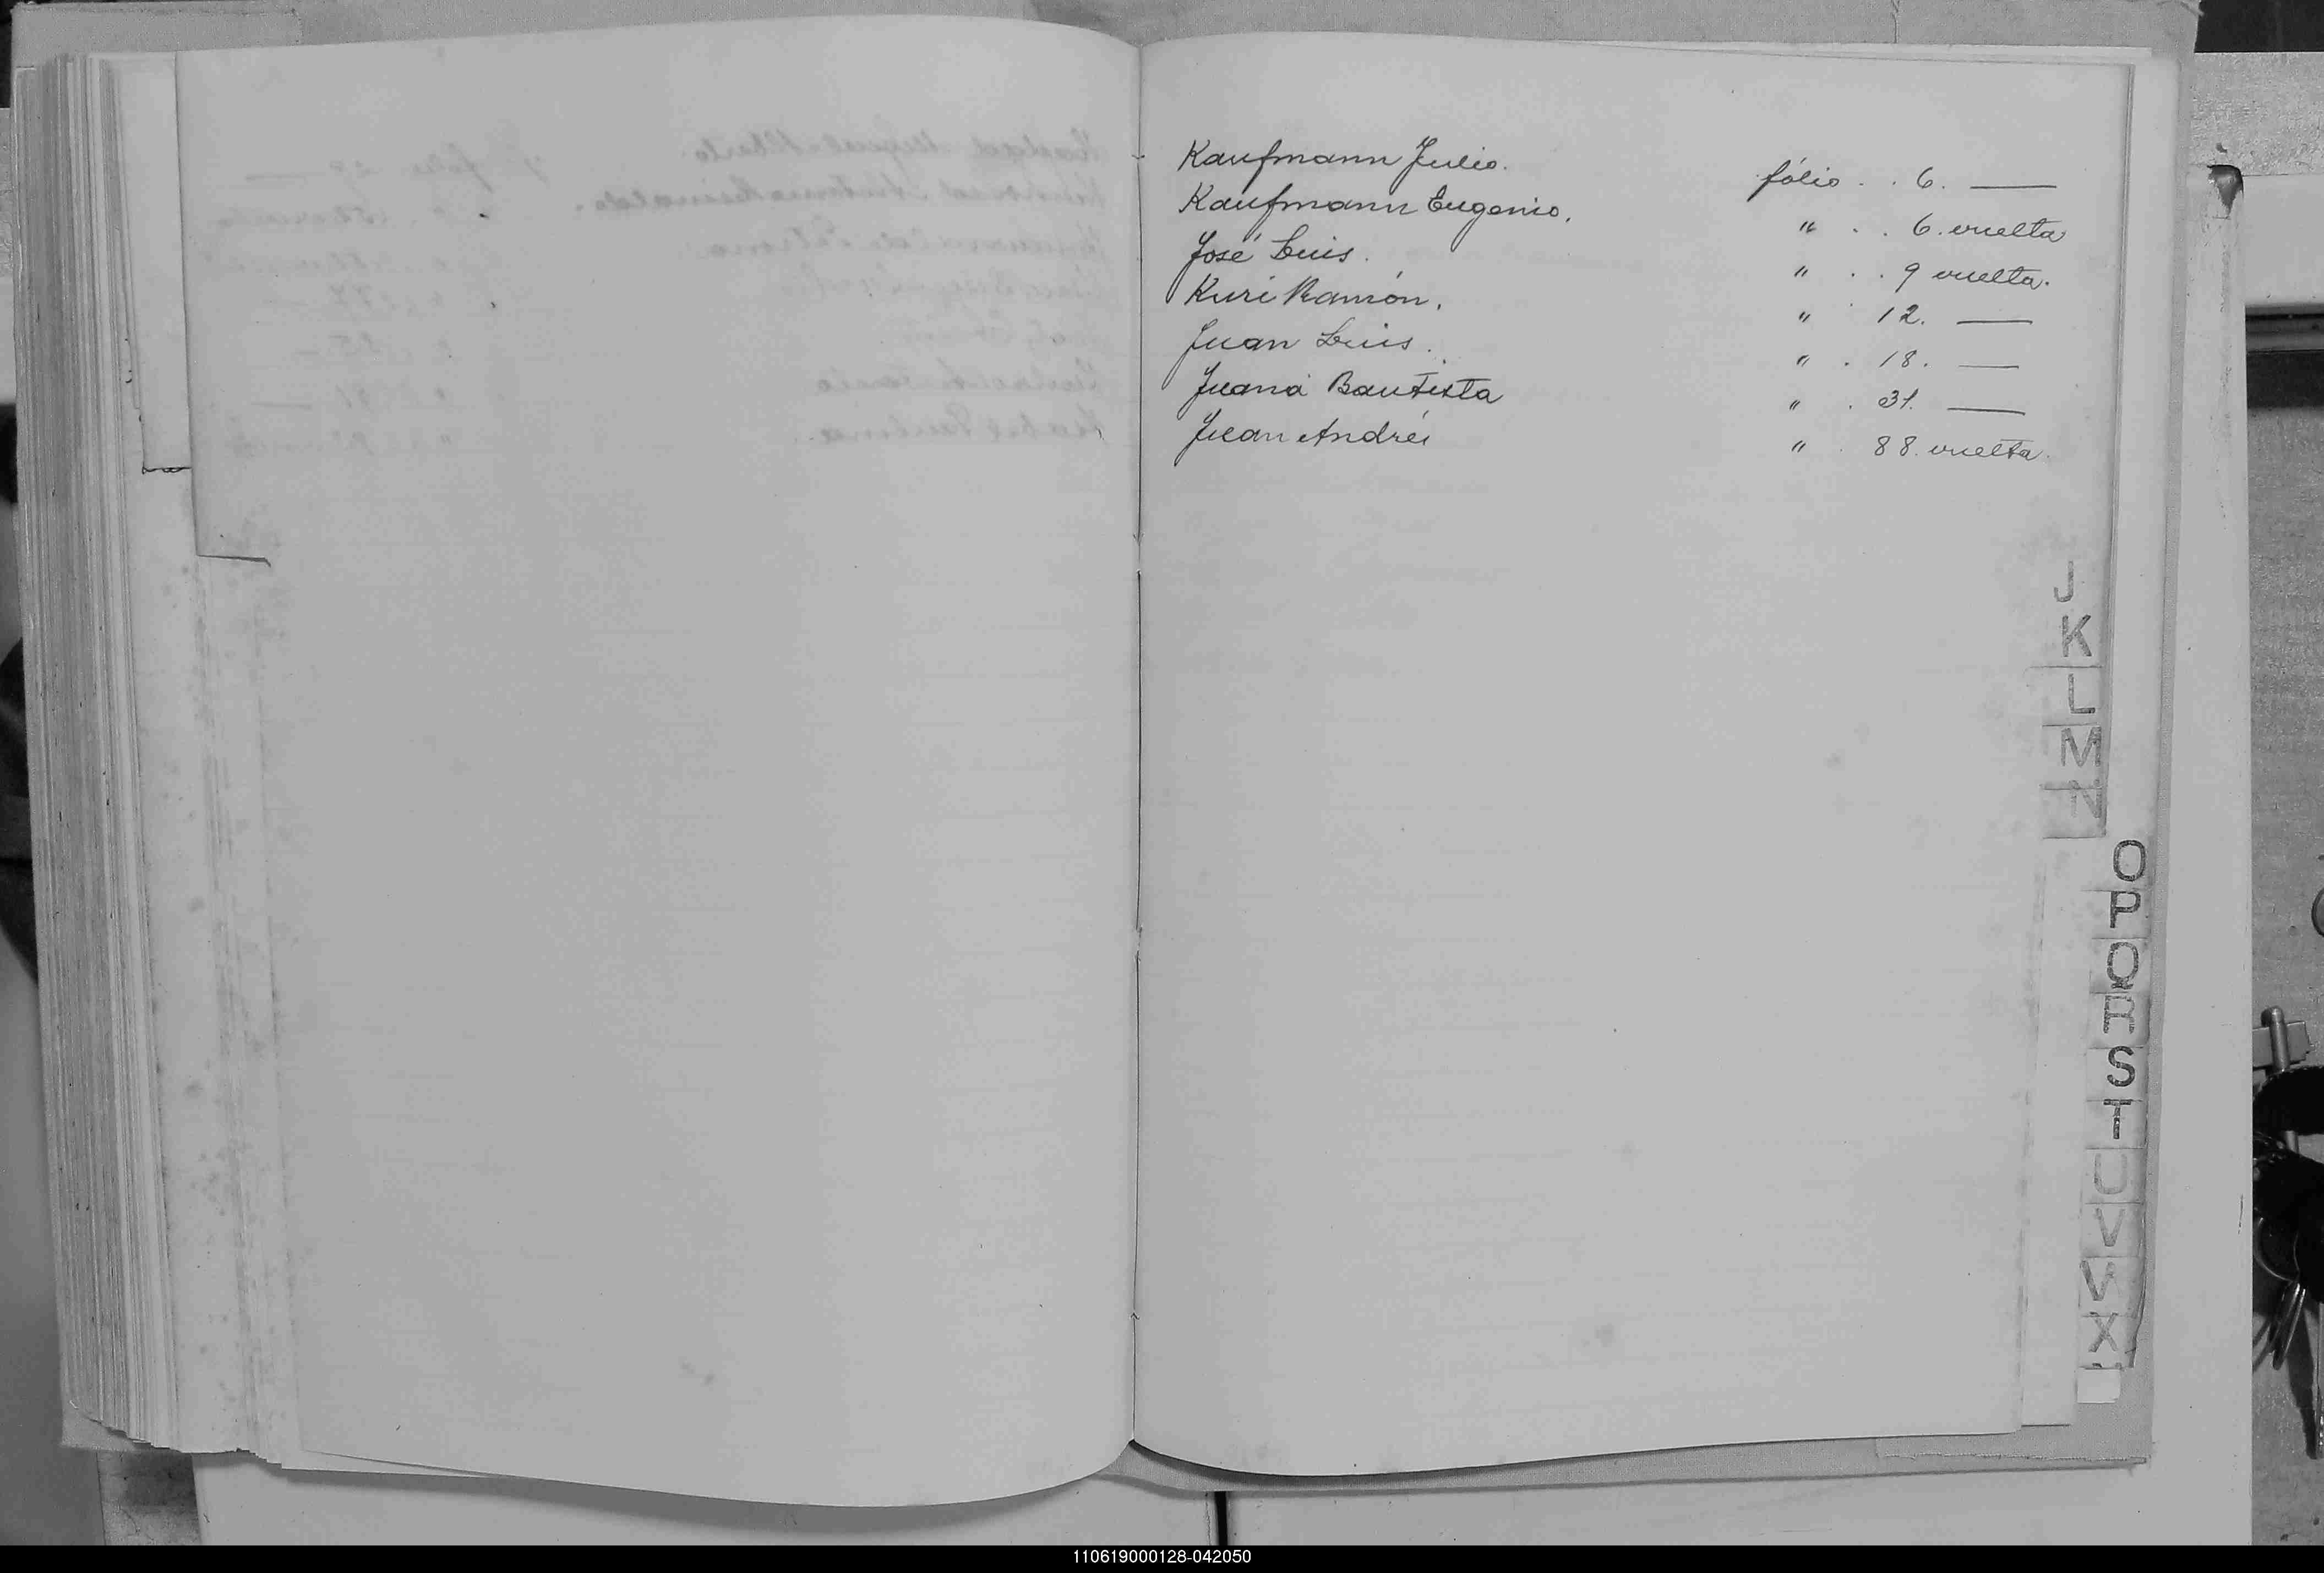 Kaufmann Julio. fólio . . 6. —
Kaufmann Eugenio. " . . 6. vuelta
José Luis. " . . 9 vuelta.
Kuri Ramón. " 12. —
Juan Luis. " . 18. —
Juana Bautista " . 31. —
Juan Andrés " . 88. vuelta.
J
K
L
M
N
O
P
Q
R
S
T
U
V
X
110619000128-042050